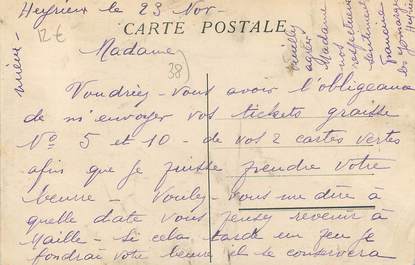 Heyrieux le 23 Nov-
12€
CARTE POSTALE
Madame
38)
Voudriez-vous avoir l'obligeance
de m'envoyer vos tickets graisse
No 5 et 10 - de vos 2 cartes vertes
afin que je puisse prendre votre
beurre - Voulez-vous me dire à
quelle date vous pensez revenir à
Maille - si cela tarde un peu je
fondrai votre beurre il se conservera
mieux -
Veuillez
agréer
Madame
nos
respectueux
sentiments